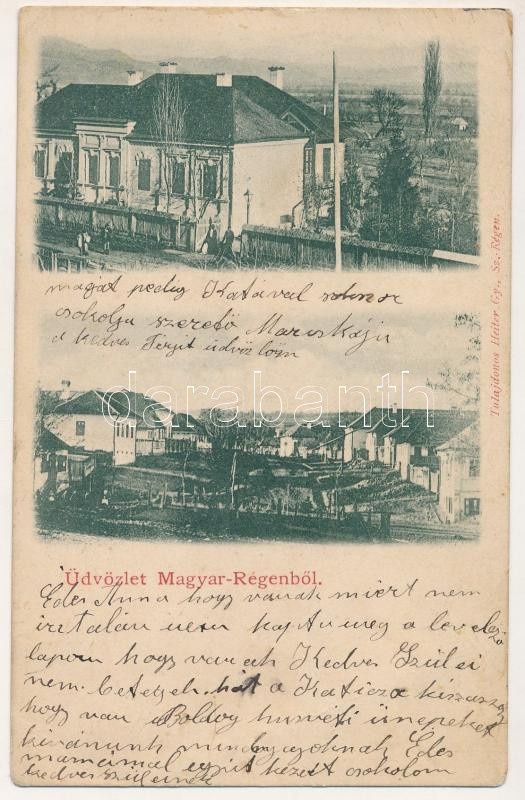 magát pedig Katával sokszor
csokolja szerető Maruskája
a kedves férjit üdvözlöm
darabanth
Tulajdonos Heiter Gy., Sz.-Régen.
Üdvözlet Magyar-Régenből.
Edes Anna hogy vanak miért nem
irtalán nem kaptu meg a levelező
lapom hogy vanak Kedves Szülei
nem betegek hát a Katicza
hogy van Boldog husvéti ünepeket
kivánunk mindnyajoknak Edes
mamámal együt kezeit csokolom
kedves szüleinek